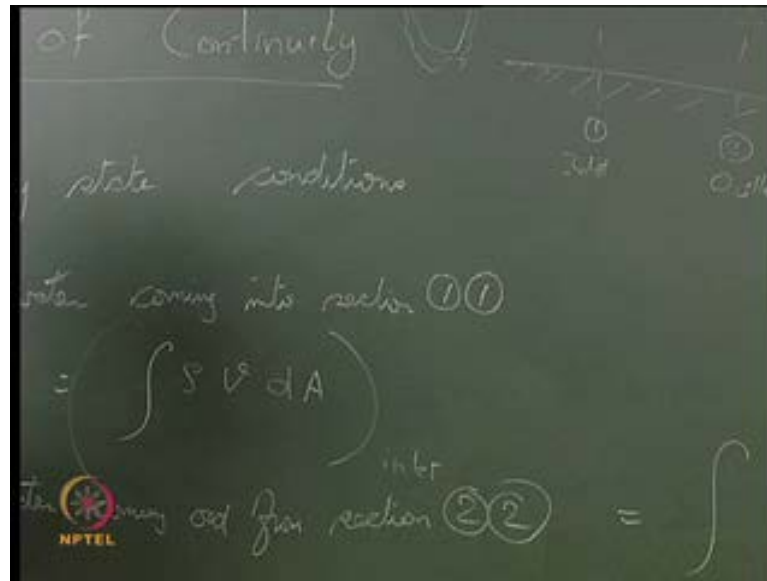 of Continuity
① ②
Inlet
state conditions
water coming into section ① ①
= ( ∫ ρ v dA )
inlet
coming out from section ② ② = ∫
NPTEL